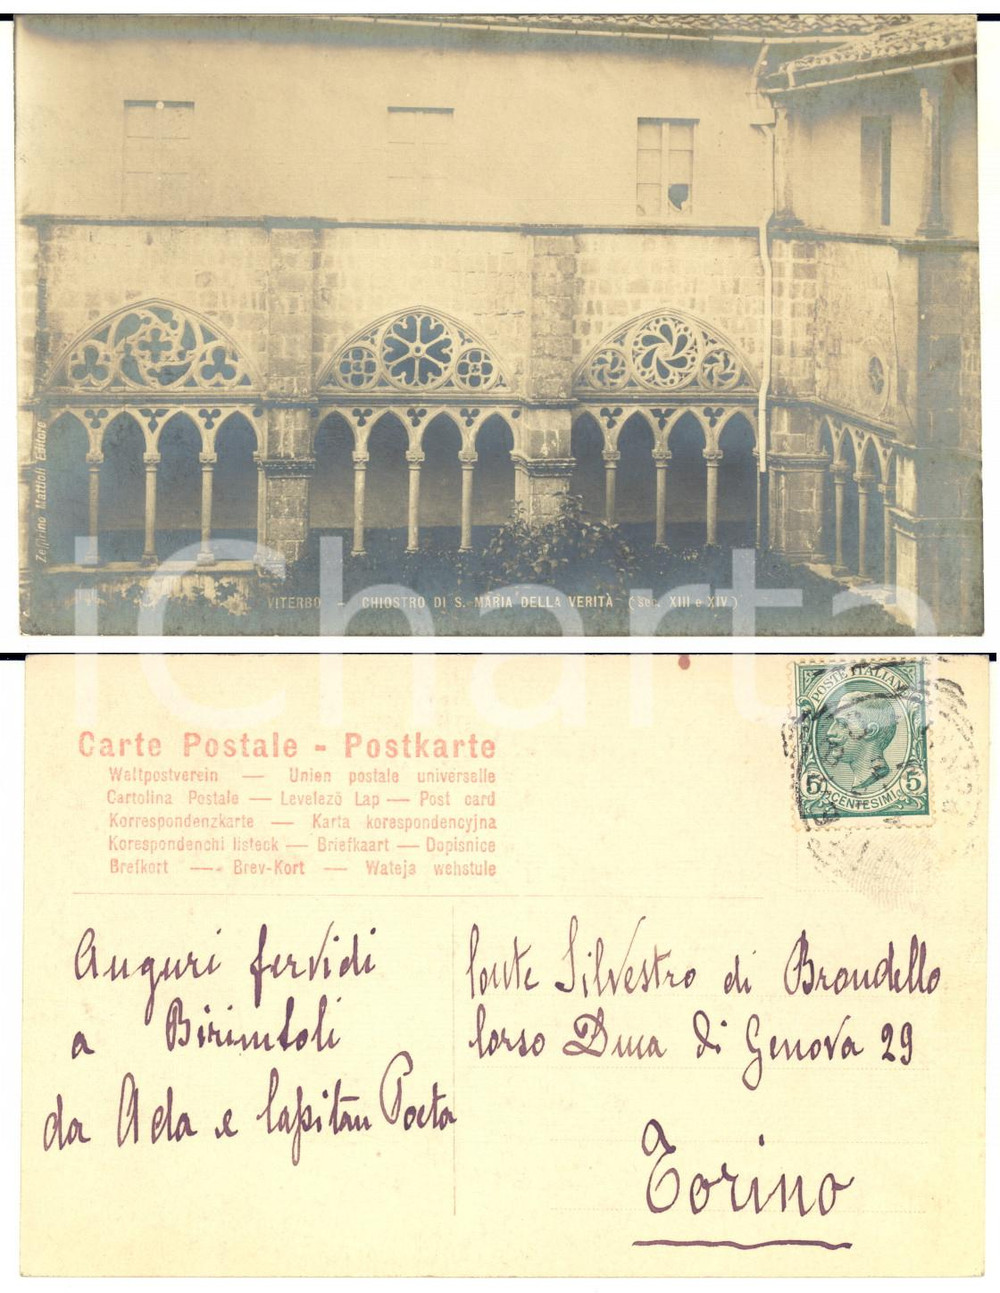 Zeffirino Mattioli Editore
VITERBO - CHIOSTRO DI S. MARIA DELLA VERITÀ (sec. XIII e XIV.)
iCharta
Carte Postale - Postkarte
Weltpostverein — Unien postale universelle
Cartolina Postale — Levelezö Lap — Post card
Korrespondenzkarte — Karta korespondencyjna
Korespondenchi listeck — Briefkaart — Dopisnice
Brefkort — Brev-Kort — Wateja wehstule
POSTE ITALIANE
5 CENTESIMI 5
Auguri fervidi
a Birimboli
da Ada e Capitan Poeta
Conte Silvestro di Brondello
Corso Duca di Genova 29
Torino